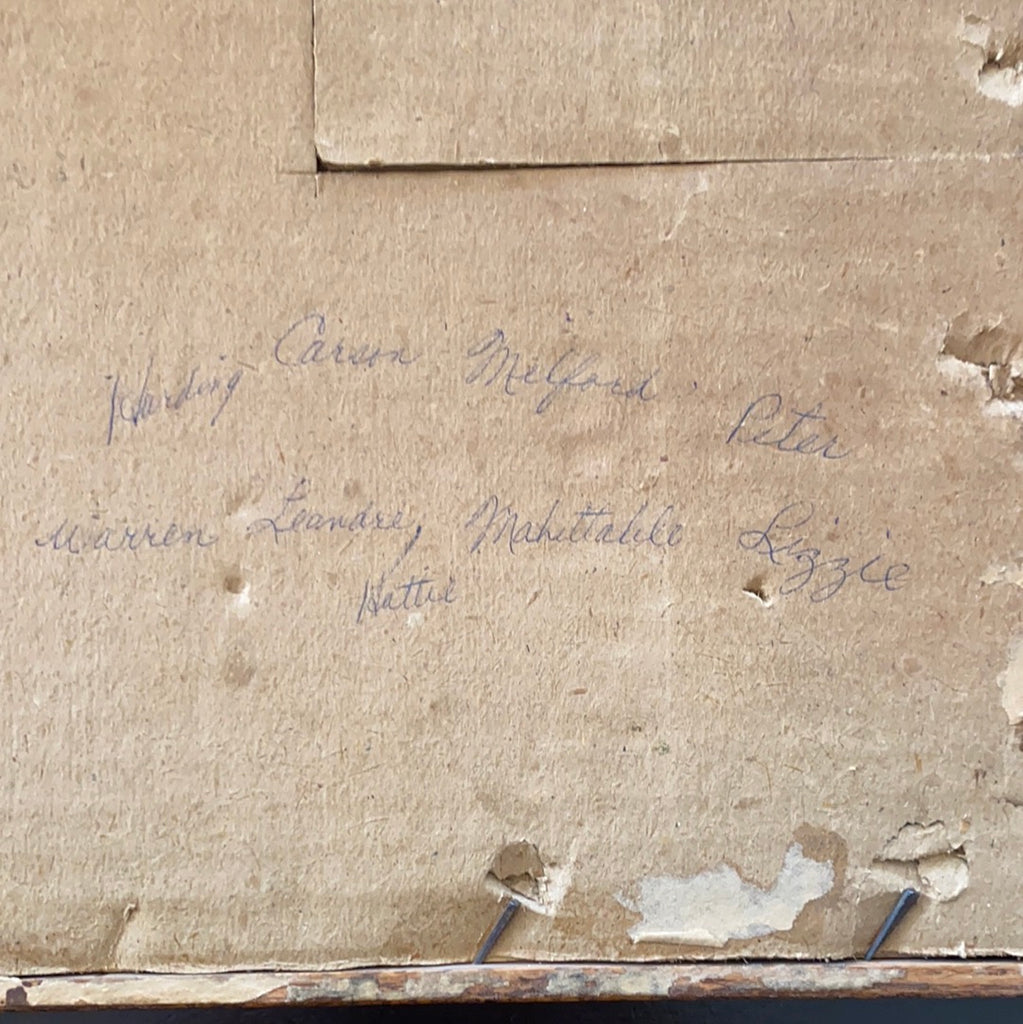 Harding Carson Milford Peter
Warren Leandre, Mahittable Lizzie
Hattie